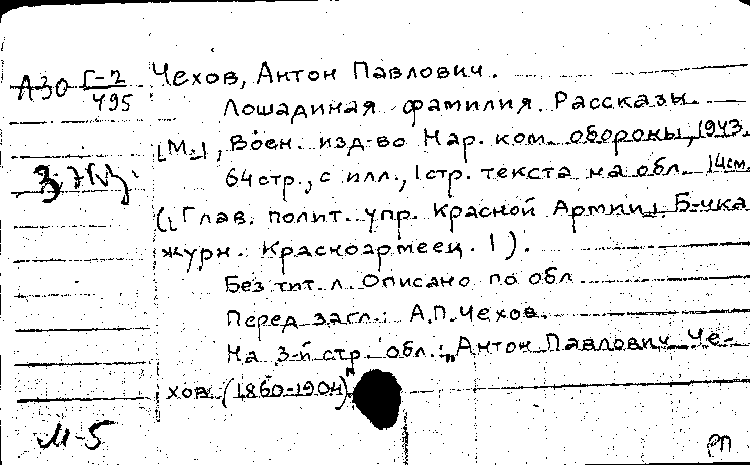 А30 Г-2/495 Чехов, Антон Павлович.
Лошадиная фамилия. Рассказы.
[М.], Воен. изд-во Нар. ком. обороны, 1943.
64 стр., с илл., 1 стр. текста на обл. 14см.
([Глав. полит. упр. Красной Армии]. Б-чка
журн. Красноармеец. 1).
Без тит. л. Описано по обл.
Перед загл.: А.П.Чехов.
На 3-й стр. обл.: „Антон Павлович Че-
хов (1860-1904)"
М-5
РП